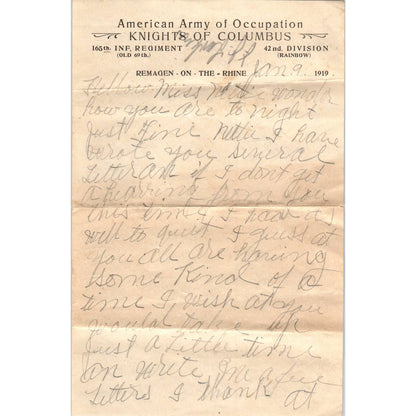 American Army of Occupation
KNIGHTS OF COLUMBUS
165th. INF. REGIMENT
(OLD 69th.)
42nd. DIVISION
(RAINBOW)
REMAGEN - ON - THE - RHINE Jan 9. 1919
Hellow Miss Nettie wonder
how you are to night
Just fine Nettie I have
wrote you several
letter an if I don't get
a hearing from you
this time I had as
well to quit I guess at
you all are having
some kind of a
time I wish at you
would take up
Just a little time
an write me a few
letters I thank at